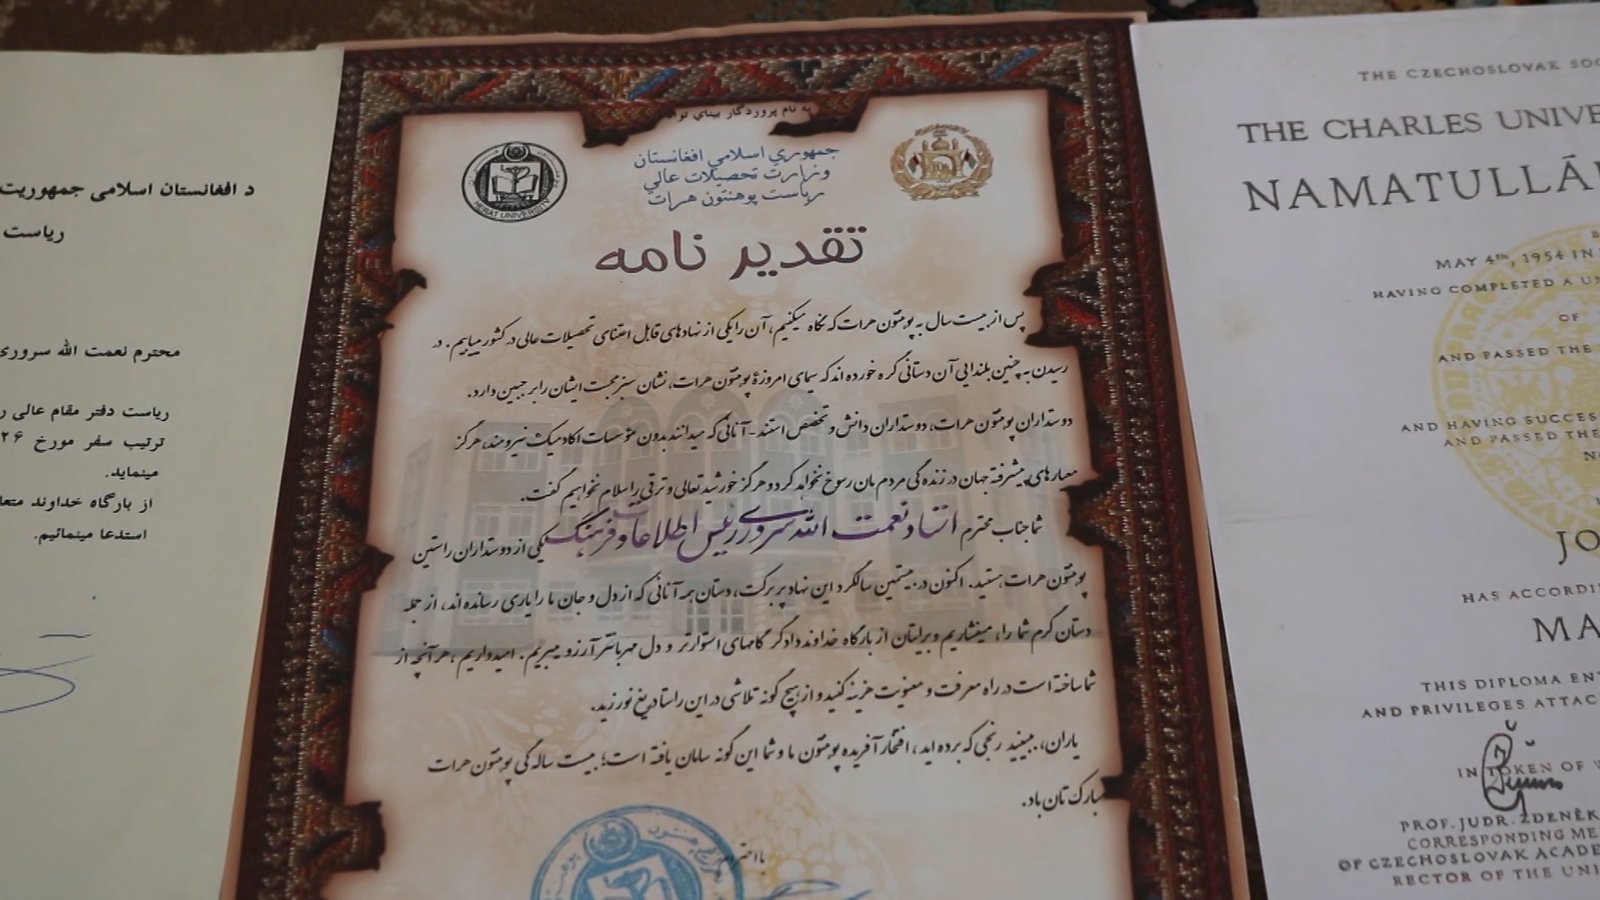 د افغانستان اسلامی جمهوریت
ریاست
محترم نعمت الله سروری
ریاست دفتر مقام عالی
ترتیب سفر مورخ ۲۶
مینماید.
از بارگاه خداوند متعا
استدعا مینمائیم.
به نام پروردگار بینای
جمهوري اسلامي افغانستان
وزارت تحصیلات عالي
ریاست پوهنتون هرات
HERAT UNIVERSITY
تقدیر نامه
پس از بیست سال به پوهنتون هرات که نگاه میکنیم، آن را یکی از نهادهای قابل اعتنای تحصیلات عالی در کشور میابیم. در
رسیدن به چنین بلندایی آن دستانی گره خورده اند که سیمای امروزهٔ پوهنتون هرات، نشان سبز محبت ایشان را بر جبین دارد.
دوستداران پوهنتون هرات، دوستداران دانش و تخصص استند - آنانی که میدانند بدون مؤسسات اکادمیک نیرومند، هرگز
معیارهای پیشرفتهٔ جهان در زنده گی مردم مان رسوخ نخواهد کرد و هرگز خورشید تعالی و ترقی را سلام نخواهیم گفت.
شما جناب محترم استاد نعمت الله سروری رئیس اطلاعات و فرهنگ یکی از دوستداران راستین
پوهنتون هرات هستید. اکنون در بیستمین سالگرد این نهاد پر برکت، دستان همه آنانی که از دل و جان ما را یاری رسانده اند، از جمله
دستان گرم شما را، میفشاریم و برایتان از بارگاه خداوند دادگر گامهای استوارتر و دل مهربانتر آرزو میبریم. امیدواریم، هر آنچه از
شما ساخته است در راه معرفت و معنویت هزینه کنید و از هیچ گونه تلاشی در این راستا دریغ نورزید.
یاران، ببینید رنجی که برده اید، افتخار آفریده پوهنتون ما و شما این گونه سامان یافته است؛ بیست ساله گی پوهنتون هرات
مبارک تان باد.
با احترام
THE CZECHOSLOVAK SOC
THE CHARLES UNIVE
NAMATULLĀ
MAY 4th, 1954 IN
HAVING COMPLETED A UN
OF
AND PASSED THE
AND HAVING SUCCES
AND PASSED THE
JO
HAS ACCORDI
MA
THIS DIPLOMA ENT
AND PRIVILEGES ATTAC
IN TOKEN OF W
PROF. JUDR. ZDENĚK
CORRESPONDING ME
OF CZECHOSLOVAK ACADE
RECTOR OF THE UNI